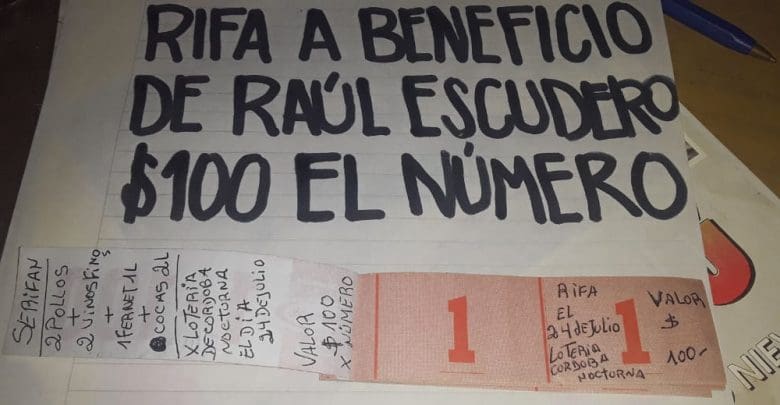 RIFA A BENEFICIO
DE RAÚL ESCUDERO
$100 EL NÚMERO
SE RIFAN
2 POLLOS
+
2 VINOS FINOS
+
1 FERNET 1L
+
COCAS 2L
X LOTERIA
DE CORDOBA
NOCTURNA
EL DÍA
24 DE JULIO
VALOR
$100
X NÚMERO
1
RIFA
EL
24 DE JULIO
LOTERIA
CORDOBA
NOCTURNA
1
VALOR
$
100-